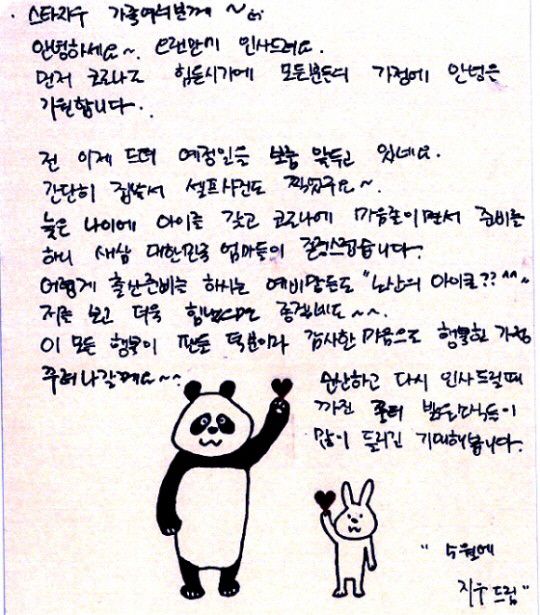 · 스타지우 가족여러분께 ~
안녕하세요~. 오랜만에 인사드려요.
먼저 코로나로 힘든시기에 모든분들의 가정에 안녕을
기원합니다.
전 이제 드뎌 예정일을 보름 앞두고 있네요.
간단히 집에서 셀프사진도 찍었구요~.
늦은 나이에 아이를 갖고 코로나에 마음졸이면서 준비를
하니 새삼 대한민국 엄마들이 존경스럽습니다.
어렵게 출산준비를 하시는 예비맘들도 "노산의 아이콘?? ^^~
저를 보고 더욱 힘냈으면 좋겠네요~~.
이 모든 행복이 팬들 덕분이라 감사한 마음으로 행복한 가정
꾸려나갈께요~~
순산하고 다시 인사드릴때
까진 좀더 밝은소식들이
많이 들리길 기대해봅니다.
" 5월에
지우 드림"